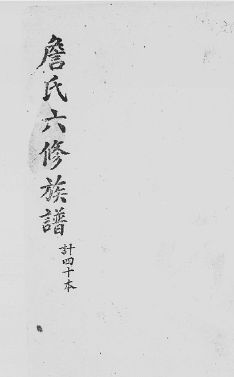 詹氏六修族譜
計四十本